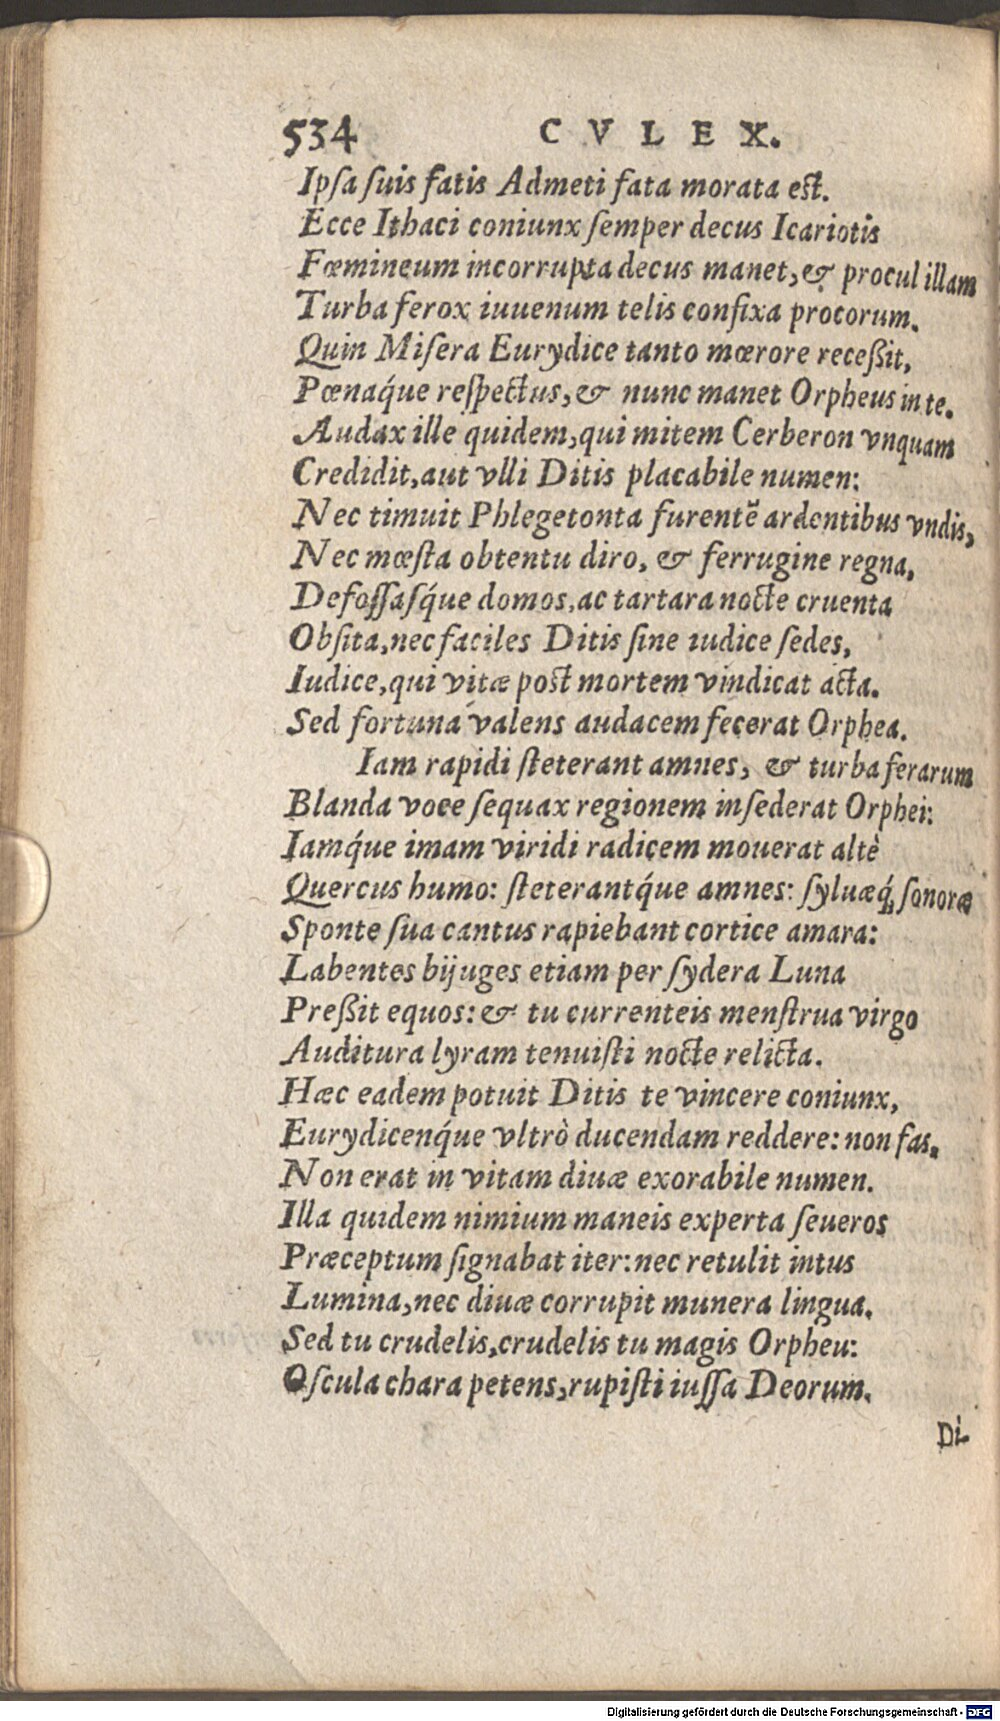 534 CVLEX.
Ipſa ſuis fatis Admeti fata morata eſt.
Ecce Ithaci coniunx ſemper decus Icariotis
Fœmineum incorrupta decus manet, & procul illam
Turba ferox iuuenum telis confixa procorum.
Quin Miſera Eurydice tanto mœrore receßit,
Pœnáque reſpectus, & nunc manet Orpheus in te.
Audax ille quidem, qui mitem Cerberon vnquam
Credidit, aut vlli Ditis placabile numen:
Nec timuit Phlegetonta furentē ardentibus vndis,
Nec mœſta obtentu diro, & ferrugine regna,
Defoſſaſq́ue domos, ac tartara nocte cruenta
Obſita, nec faciles Ditis ſine iudice ſedes,
Iudice, qui vitæ poſt mortem vindicat acta.
Sed fortuna valens audacem fecerat Orphea.
Iam rapidi ſteterant amnes, & turba ferarum
Blanda voce ſequax regionem inſederat Orphei:
Iamq́ue imam viridi radicem mouerat altè
Quercus humo: ſteterantq́ue amnes: ſyluæq́; ſonoræ
Sponte ſua cantus rapiebant cortice amara:
Labentes bijuges etiam per ſydera Luna
Preßit equos: & tu currenteis menſtrua virgo
Auditura lyram tenuiſti nocte relicta.
Hæc eadem potuit Ditis te vincere coniunx,
Eurydicenq́ue vltrò ducendam reddere: non fas,
Non erat in vitam diuæ exorabile numen.
Illa quidem nimium maneis experta ſeueros
Præceptum ſignabat iter: nec retulit intus
Lumina, nec diuæ corrupit munera lingua.
Sed tu crudelis, crudelis tu magis Orpheu:
Oſcula chara petens, rupiſti iuſſa Deorum.
Di-
Digitalisierung gefördert durch die Deutsche Forschungsgemeinschaft - DFG